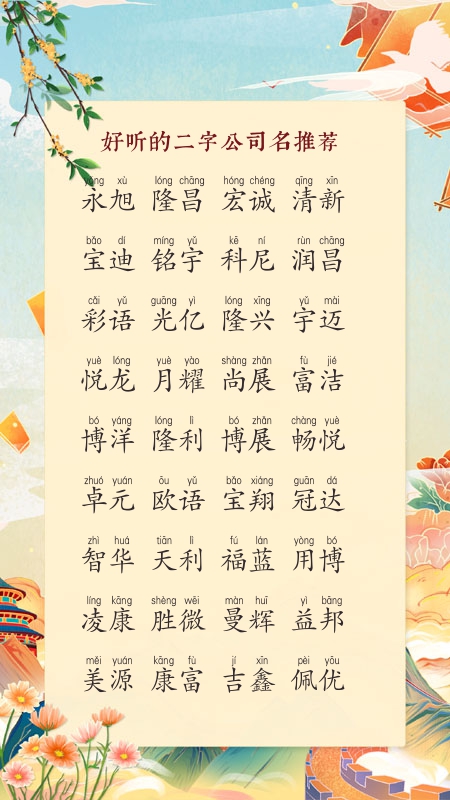 好听的二字公司名推荐
yǒng xù lóng chāng hóng chéng qīng xīn
永旭 隆昌 宏诚 清新
bǎo dí míng yǔ kē ní rùn chāng
宝迪 铭宇 科尼 润昌
cǎi yǔ guāng yì lóng xīng yǔ mài
彩语 光亿 隆兴 宇迈
yuè lóng yuè yào shàng zhǎn fù jié
悦龙 月耀 尚展 富洁
bó yáng lóng lì bó zhǎn chàng yuè
博洋 隆利 博展 畅悦
zhuó yuán ōu yǔ bǎo xiáng guān dá
卓元 欧语 宝翔 冠达
zhì huá tiān lì fú lán yòng bó
智华 天利 福蓝 用博
líng kāng shèng wēi màn huī yì bāng
凌康 胜微 曼辉 益邦
měi yuán kāng fù jí xīn pèi yōu
美源 康富 吉鑫 佩优